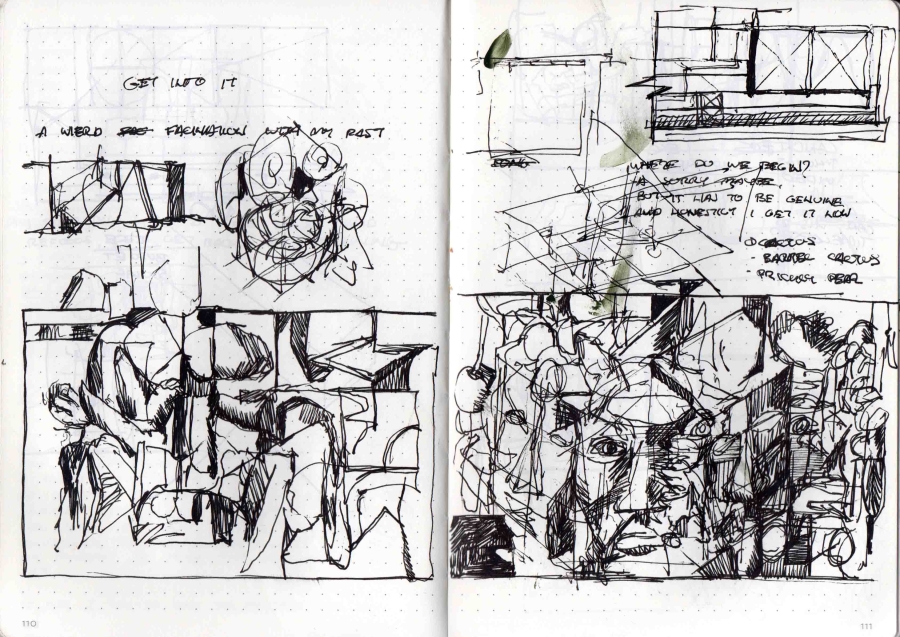 GET INTO IT
A WIERD FACINATION WITH MY PAST
110
WHERE DO WE BEGIN?
A SORRY MAYBE,
BUT IT HAS TO BE GENUINE
AND HONESTLY I GET IT NOW
CACTUS
- BARREL CACTUS
- PRICKLY PEAR
111